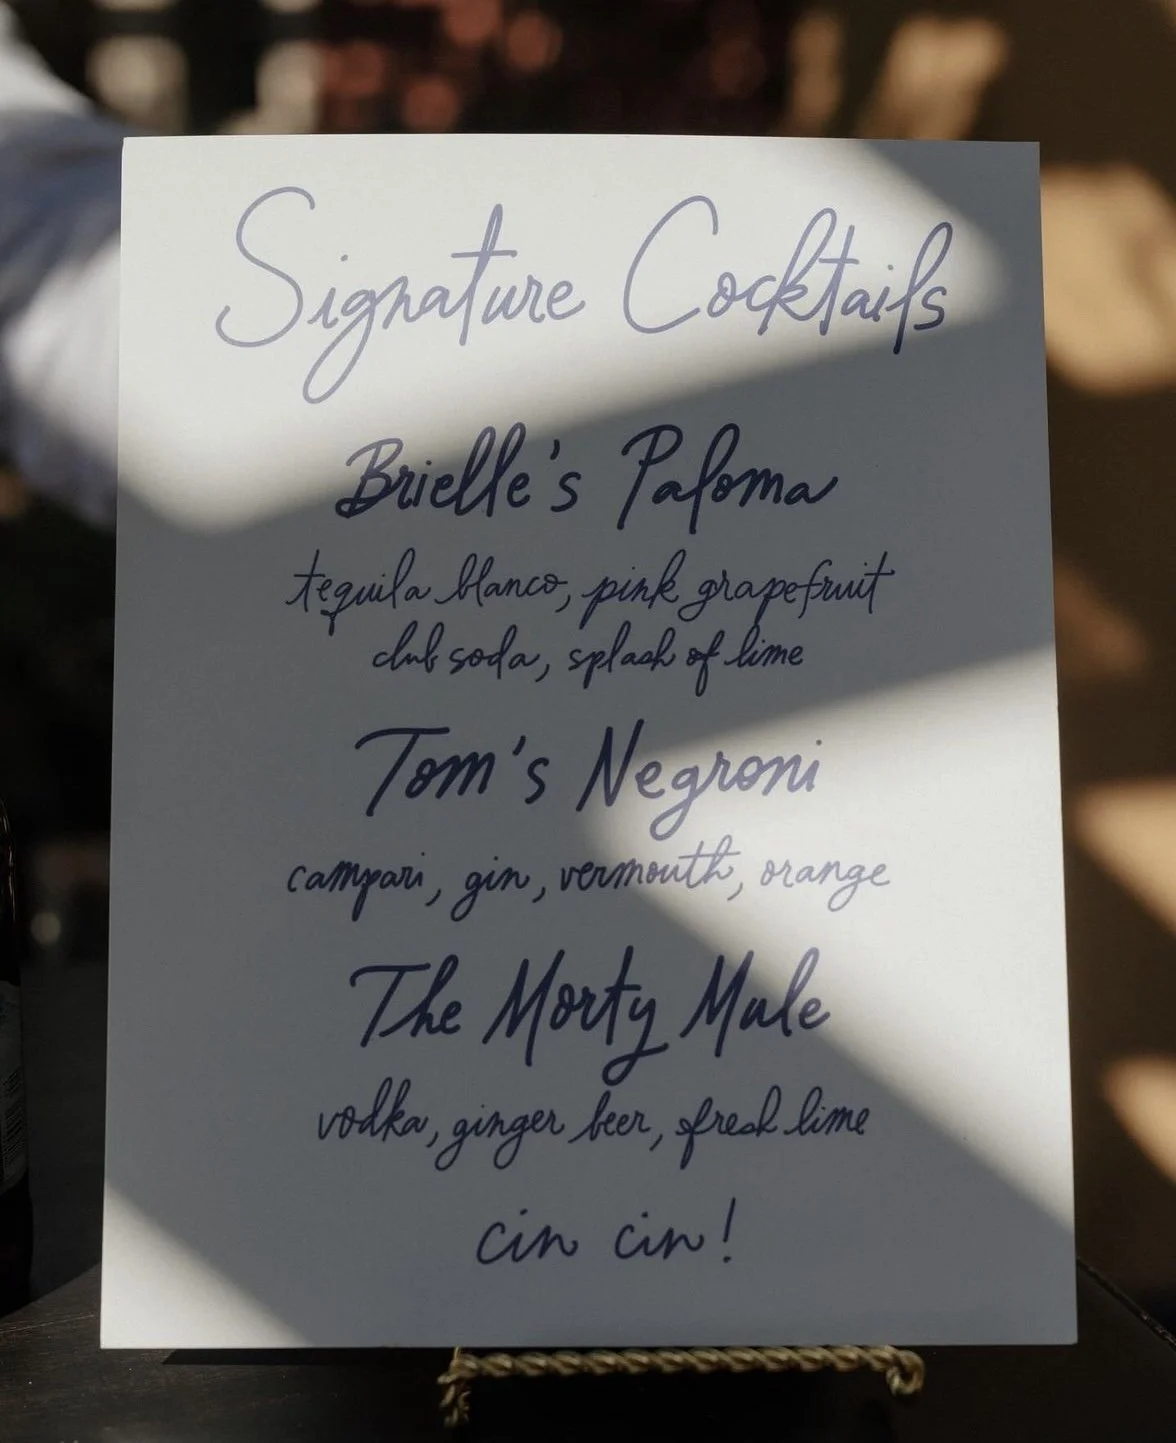 Signature Cocktails
Brielle's Paloma
tequila blanco, pink grapefruit
club soda, splash of lime
Tom's Negroni
campari, gin, vermouth, orange
The Morty Mule
vodka, ginger beer, fresh lime
cin cin!